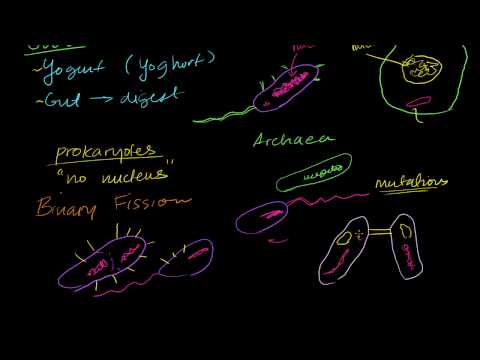 - Yogurt (Yoghort)
- Gut → digest
prokaryotes
"no nucleus"
Binary Fission
Archaea
mutations